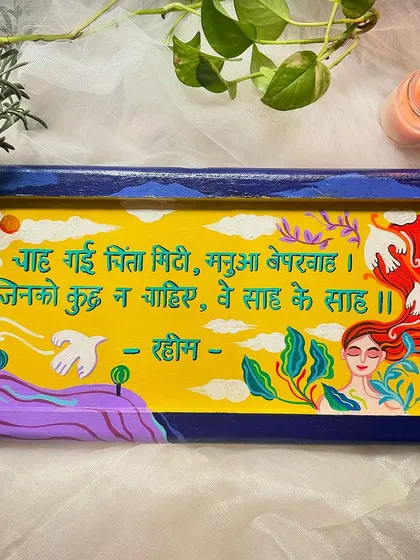 चाह गई चिंता मिटी, मनुआ बेपरवाह ।
जिनको कुछ न चाहिए, वे साह के साह ॥
- रहीम -